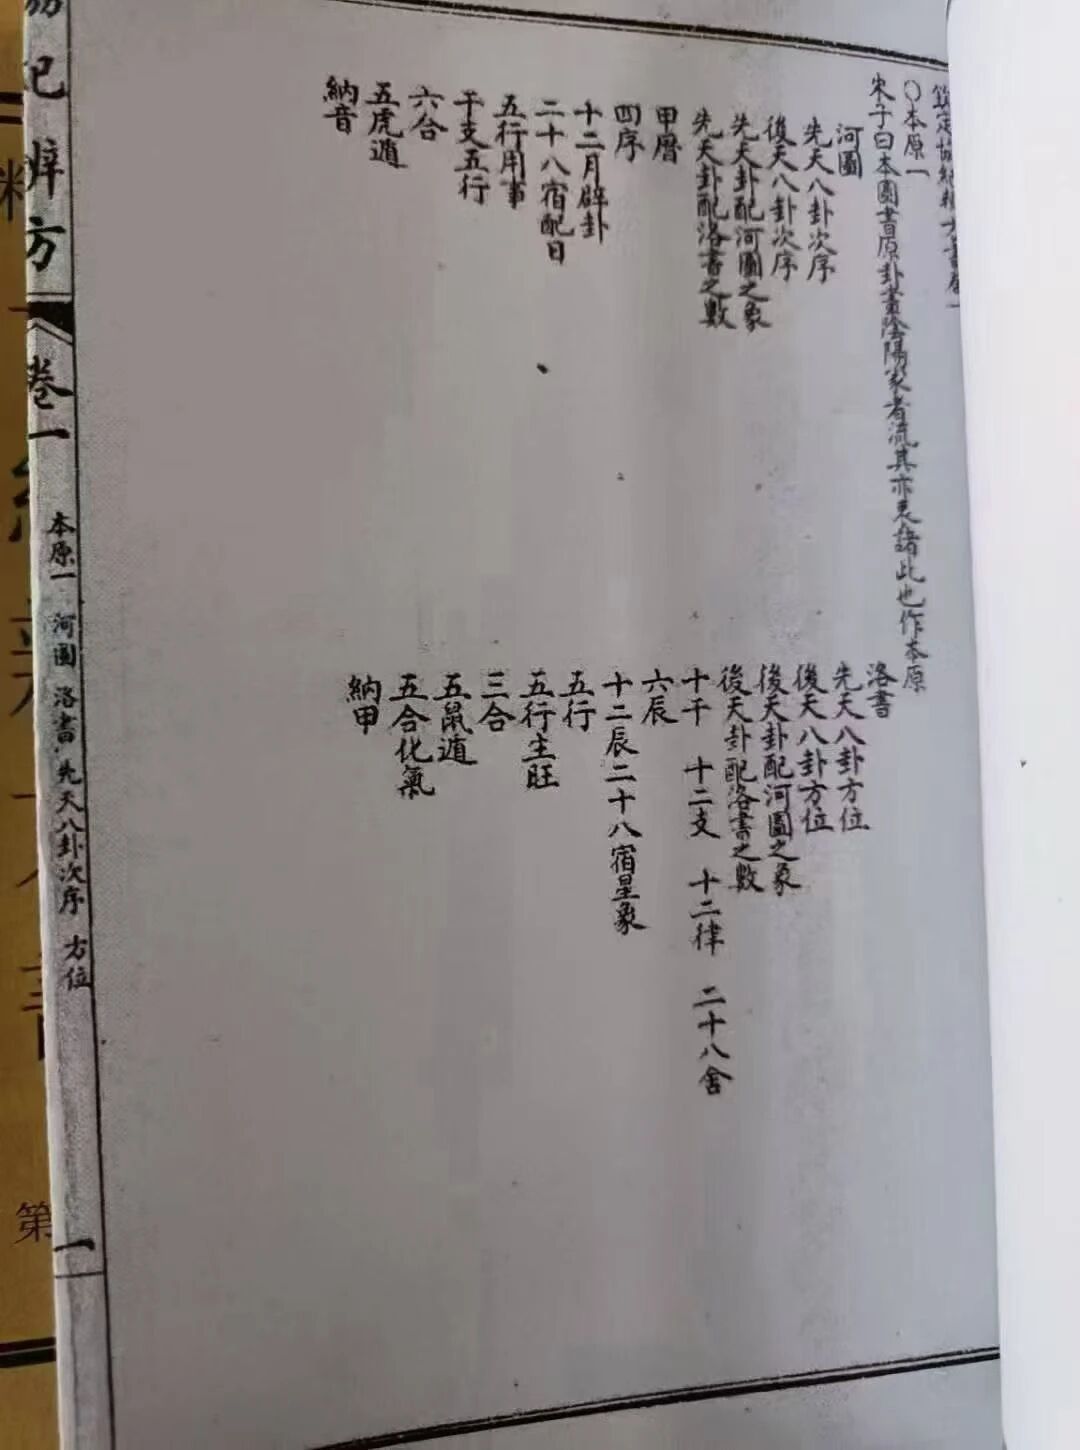 欽定協紀辨方書卷一
〇本原一
朱子曰本圖書原卦畫陰陽家者流其亦衷諸此也作本原
河圖
洛書
先天八卦次序
先天八卦方位
後天八卦次序
後天八卦方位
先天卦配河圖之象
後天卦配河圖之象
先天卦配洛書之數
後天卦配洛書之數
甲曆
十干 十二支 十二律 二十八舍
四序
六辰
十二月辟卦
十二辰二十八宿星象
二十八宿配日
五行
五行用事
五行生旺
干支五行
三合
六合
五鼠遁
五虎遁
五合化氣
納音
納甲
紀辨方
卷一
本原一 河圖 洛書 先天八卦次序 方位
一
第